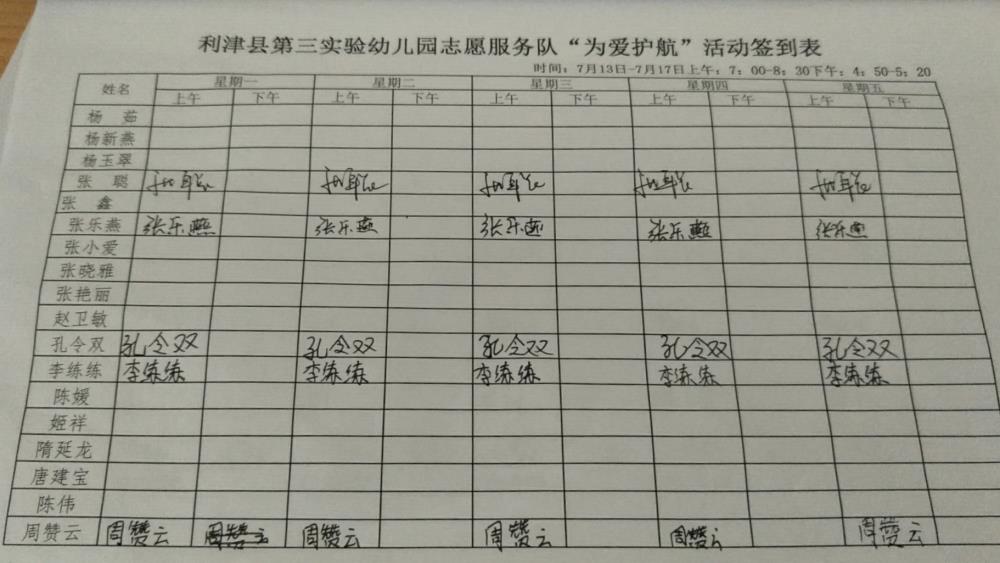 利津县第三实验幼儿园志愿服务队“为爱护航”活动签到表
时间：7月13日-7月17日上午：7：00-8：30下午：4：50-5：20
姓名 星期一 星期二 星期三 星期四 星期五
上午 下午 上午 下午 上午 下午 上午 下午 上午 下午
杨 茹
杨新燕
杨玉翠
张 聪 张聪 张聪 张聪 张聪 张聪
张 鑫
张乐燕 张乐燕 张乐燕 张乐燕 张乐燕 张乐燕
张小爱
张晓雅
张艳丽
赵卫敏
孔令双 孔令双 孔令双 孔令双 孔令双 孔令双
李练练 李练练 李练练 李练练 李练练 李练练
陈媛
姬祥
隋延龙
唐建宝
陈伟
周赞云 周赞云 周赞云 周赞云 周赞云 周赞云 周赞云